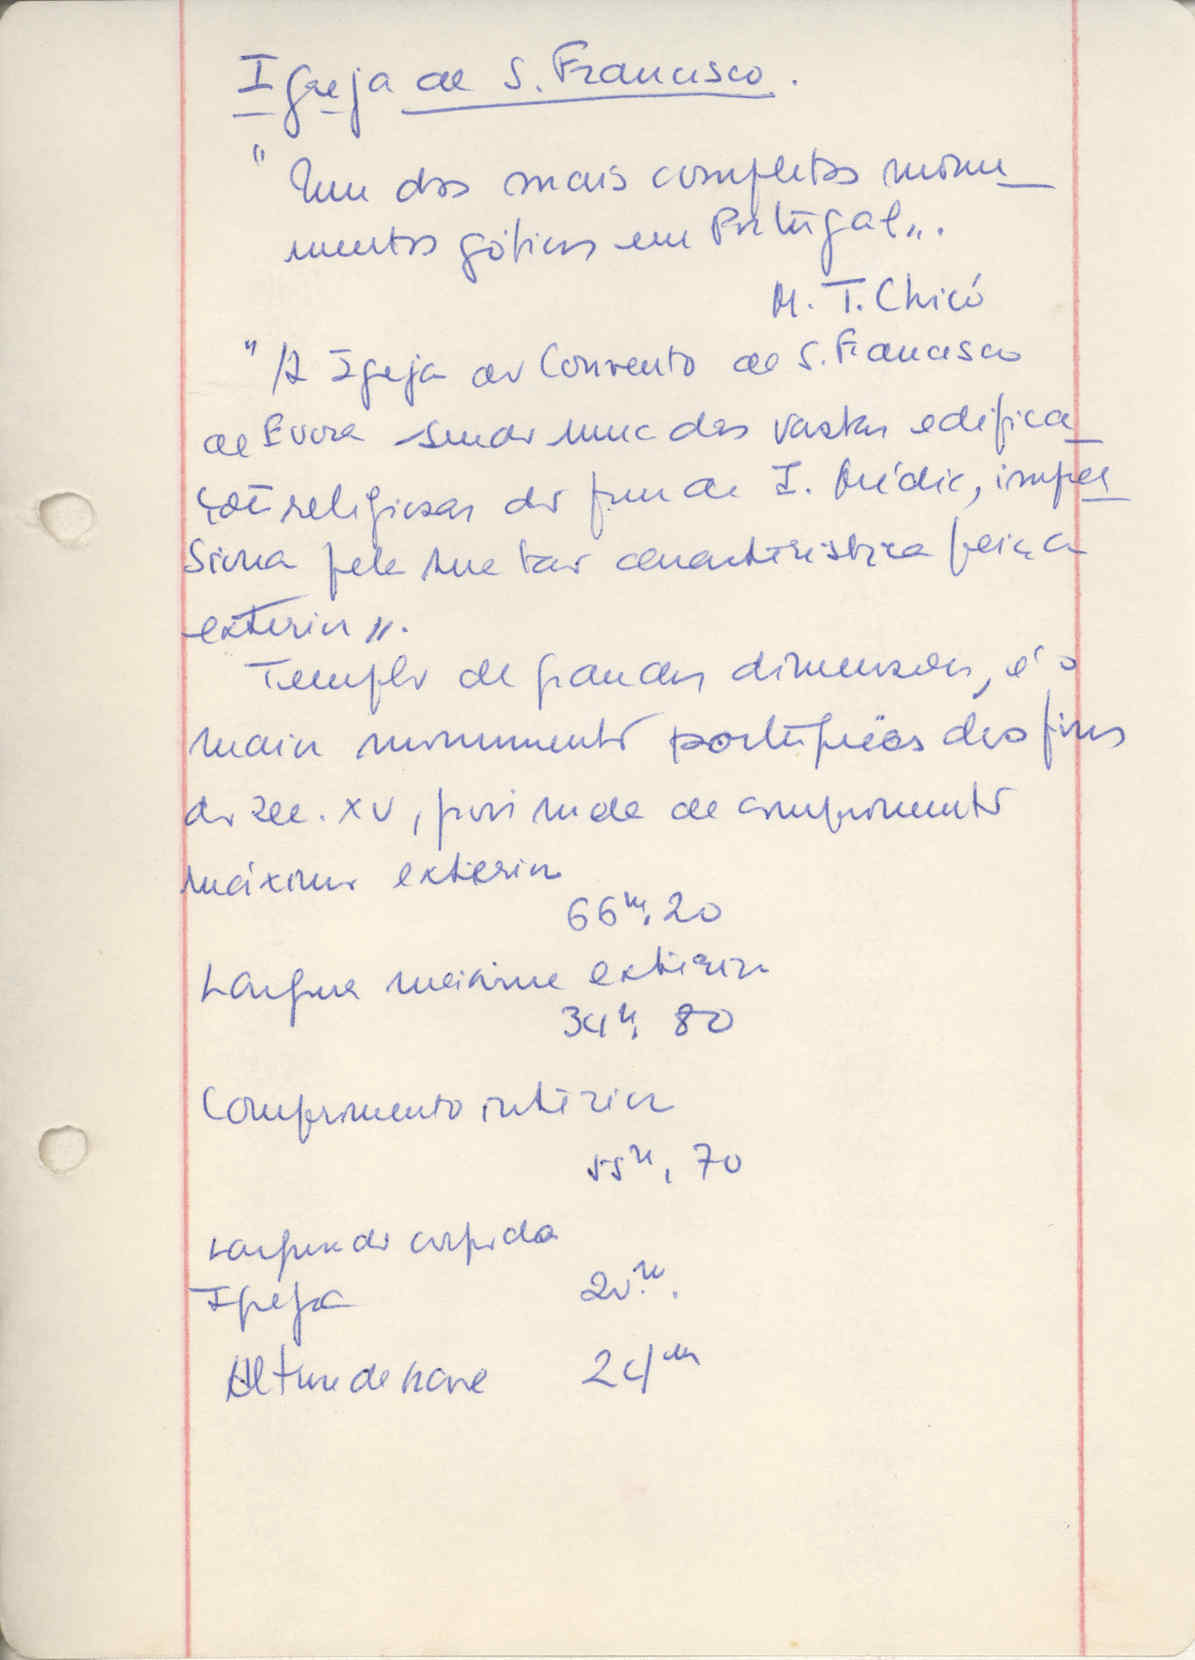 Igreja de S. Francisco.
"Um dos mais completos monu
mentos góticos em Portugal".
M. T. Chicó
"A Igreja do Convento de S. Francisco
de Evora sendo uma das vastas edifica
ções religiosas do fim da I. Média, impres
siona pela sua tão característica feição
exterior".
Templo de grandes dimensões, é o
maior monumento português dos fins
do séc. XV, pois mede de comprimento
máximo exterior
66m,20
Largura máxima exterior
34m, 80
Comprimento interior
55m, 70
Largura do corpo da
Igreja 20m.
Altura da nave 24m